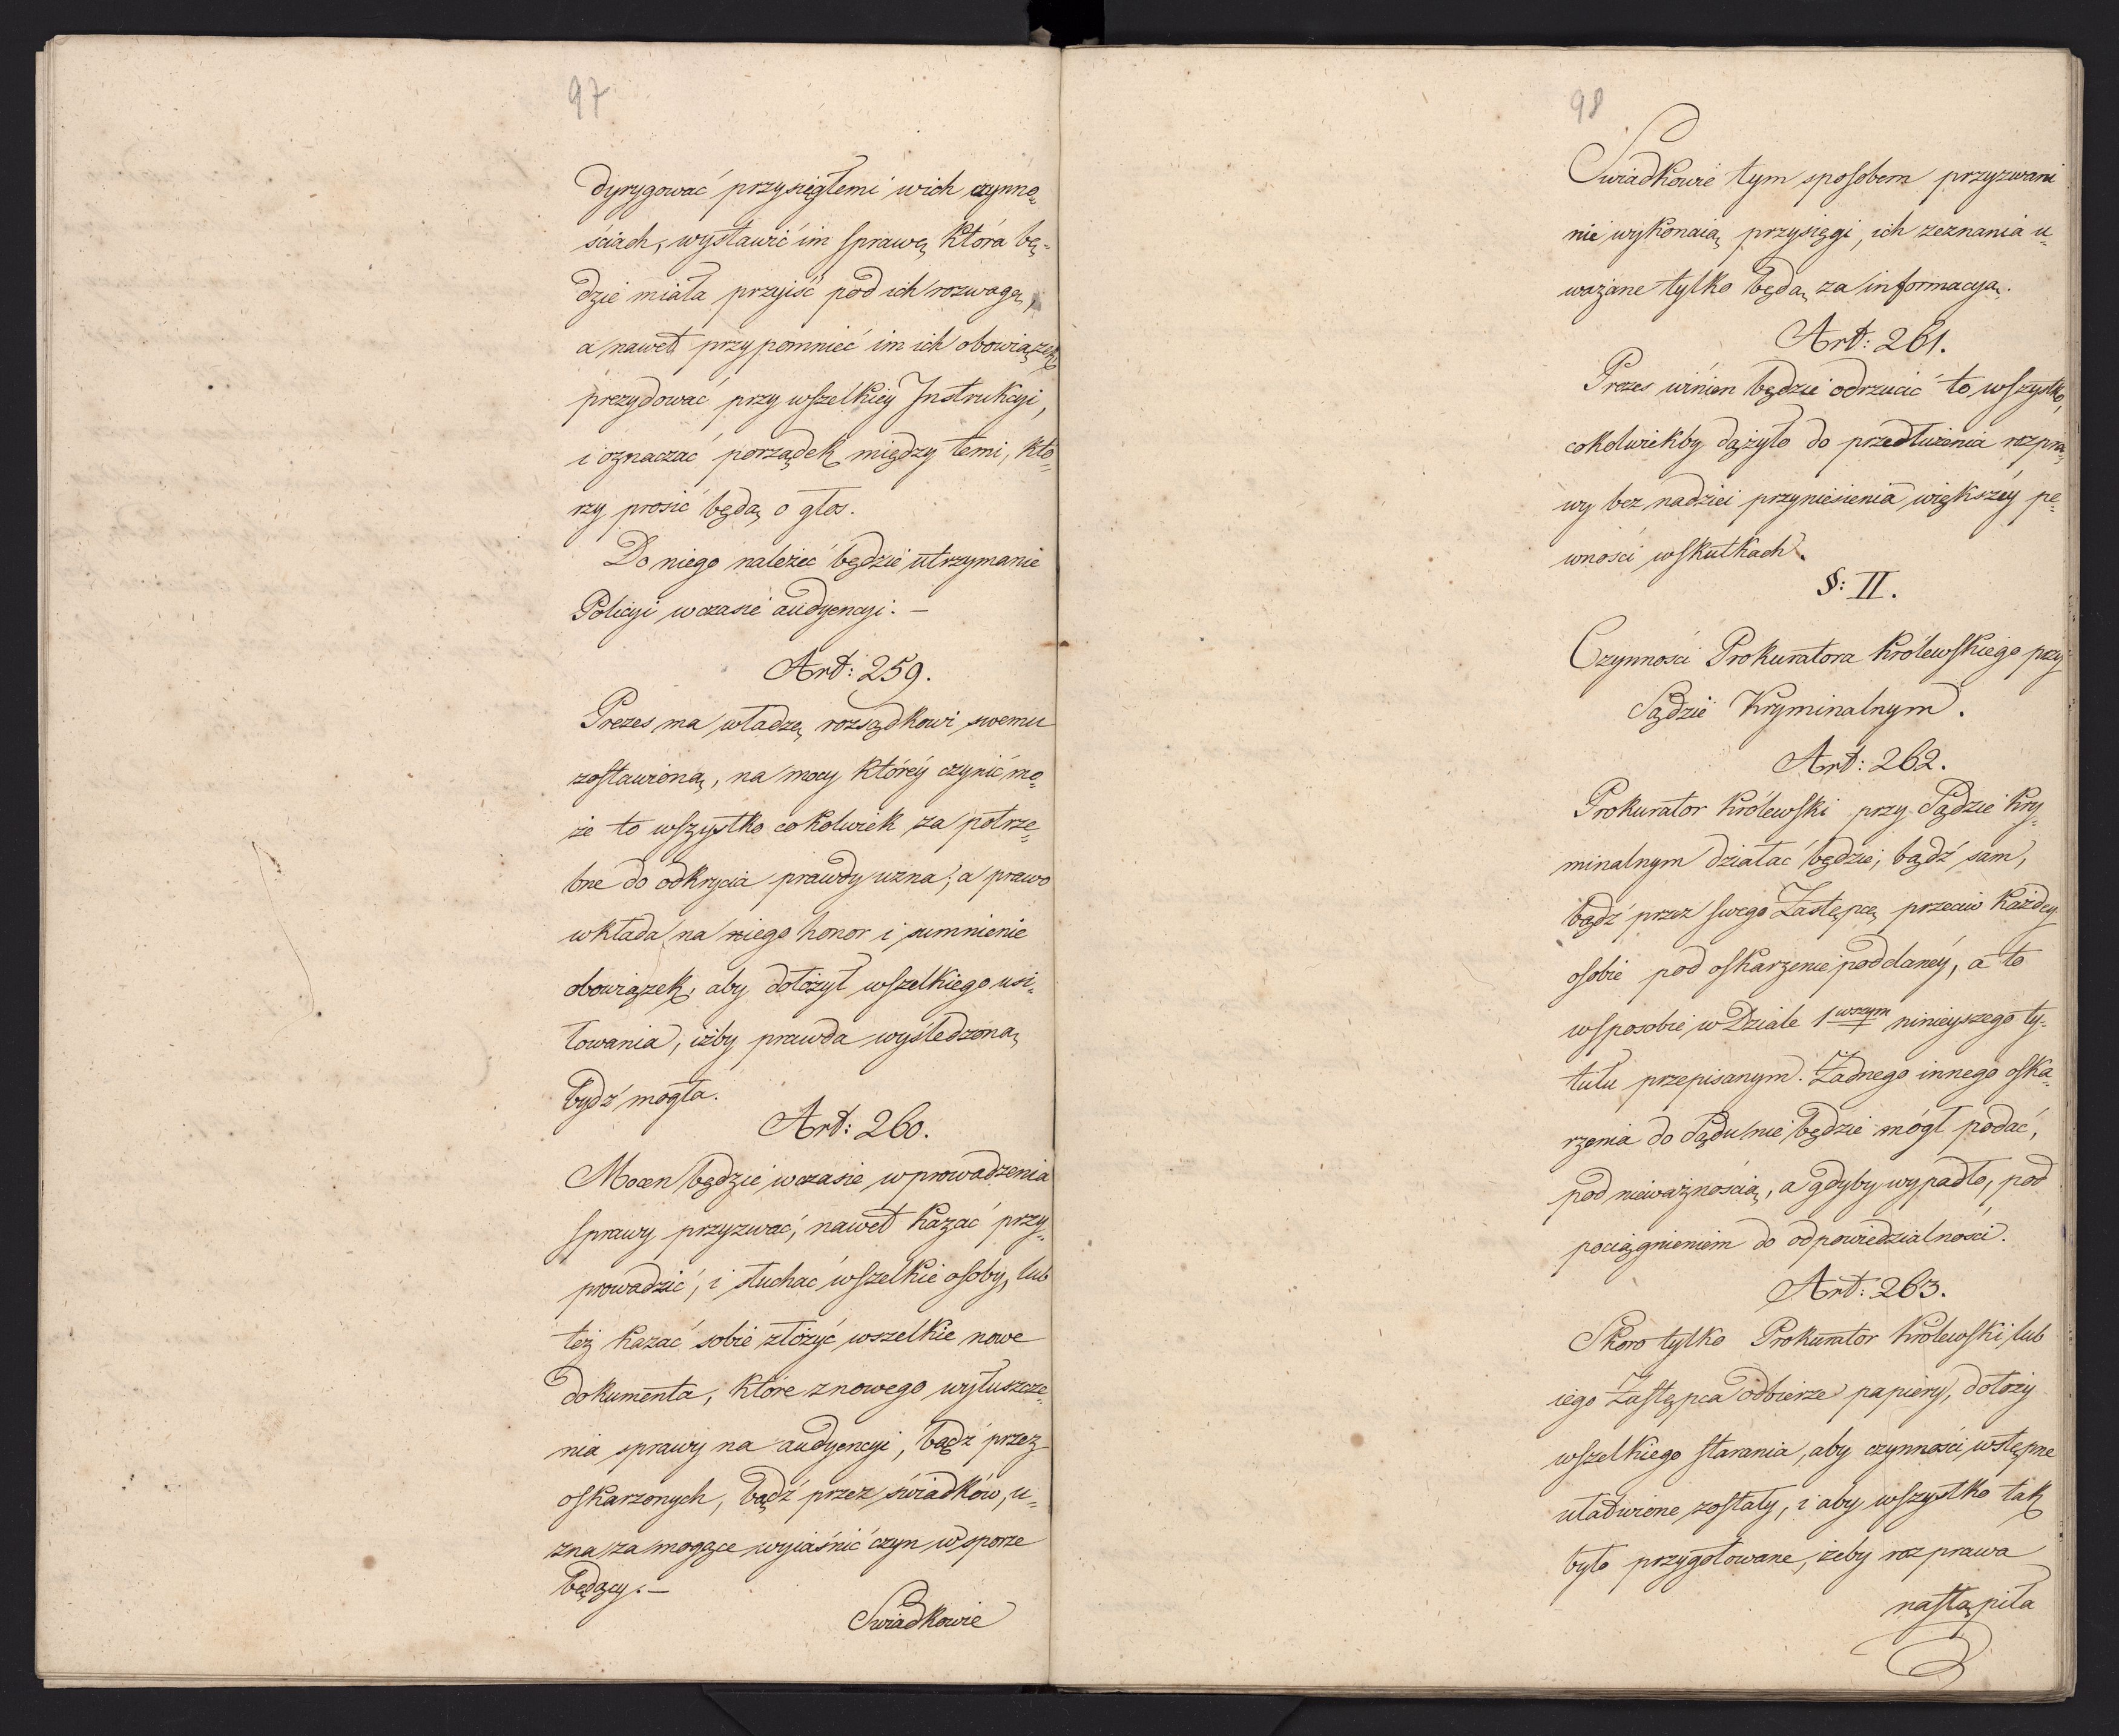 97
dyrygować przysięgłemi w ich czynno„
ściach, wystawić im sprawę, która bę„
dzie miała przyiść pod ich rozwagę,
a nawet przypomnieć im ich obowiązek,
prezydować przy wszelkiey Instrukcyi,
i oznaczać porządek między temi, któ„
rzy prosić będą o głos.
Do niego należeć będzie utrzymanie
Policyi w czasie audyencyi. —
Art: 259.
Prezes ma władzę rozsądkowi swemu
zostawioną, na mocy którey czynić mo„
że to wszystko cokolwiek za potrze„
bne do odkrycia prawdy uzna; a prawo
wkłada na niego honor i sumnienie
obowiązek, aby dołożył wszelkiego usi„
łowania, iżby prawda wyśledzoną
bydź mogła.
Art: 260.
Mocen będzie w czasie wprowadzenia
sprawy przyzwać, nawet kazać przy„
prowadzić, i słuchać wszelkie osoby, lub
też kazać sobie złożyć wszelkie nowe
dokumenta, które z nowego wyłuszcze„
nia sprawy na audyencyi, bądź przez
oskarzonych, bądź przez świadków, u„
zna za mogące wyiaśnić czyn w sporze
będący. —
Swiadkowie
98
Swiadkowie tym sposobem przyzwani
nie wykonaią przysięgi, ich zeznania u„
ważane tylko będą za informacyą.
Art: 261.
Prezes winien będzie odrzucić to wszystko,
cokolwiekby dążyło do przedłużenia rozpra„
wy bez nadziei przyniesienia większey pe„
wności w skutkach.
§: II.
Czynności Prokuratora Królewskiego przy
Sądzie Kryminalnym.
Art: 262.
Prokurator Królewski przy Sądzie Kry„
minalnym działać będzie, bądź sam,
bądź przez swego Zastępcę przeciw każdey
osobie pod oskarzenie poddaney, a to
w sposobie w Dziale 1wszym ninieyszego ty„
tułu przepisanym. Żadnego innego oska„
rzenia do Sądu nie będzie mógł podać,
pod nieważnością, a gdyby wypadło, pod
pociągnieniem do odpowiedzialności.
Art: 263.
Skoro tylko Prokurator Królewski lub
iego Zastępca odbierze papiery, dołoży
wszelkiego starania, aby czynności wstępne
uładwione zostały, i aby wszystko tak
było przygotowane, żeby rozprawa
nastąpiła